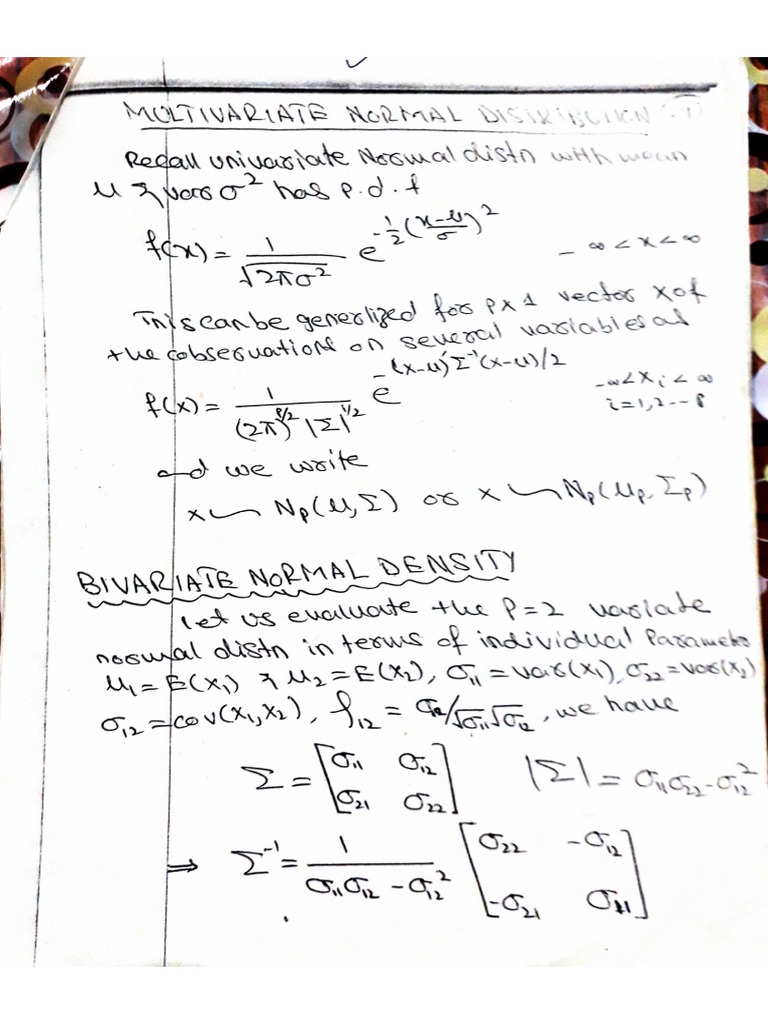 MULTIVARIATE NORMAL DISTRIBUTION (1)
Recall univariate Normal distn with mean
μ & var σ² has p.d.f
f(x) = 1/√(2πσ²) e^{-½((x-μ)/σ)²}   -∞ < x < ∞
This can be generlized for p×1 vector x of
the observations on several variables as
f(x) = 1/((2π)^{p/2} |Σ|^{1/2}) e^{-(x-μ)'Σ⁻¹(x-μ)/2}   -∞ < xᵢ < ∞
i = 1,2 -- p
and we write
x ~ Np(μ, Σ) or x ~ Np(μp, Σp)
BIVARIATE NORMAL DENSITY
Let us evaluate the P=2 variate
normal distn in terms of individual Parameter
μ₁ = E(x₁) & μ₂ = E(x₂), σ₁₁ = var(x₁), σ₂₂ = var(x₂)
σ₁₂ = cov(x₁,x₂), ρ₁₂ = σ₁₂/√σ₁₁√σ₁₂, we have
Σ = [σ₁₁ σ₁₂; σ₂₁ σ₂₂]   |Σ| = σ₁₁σ₂₂ - σ₁₂²
⇒ Σ⁻¹ = 1/(σ₁₁σ₁₂ - σ₁₂²) [σ₂₂ -σ₁₂; -σ₂₁ σ₁₁]